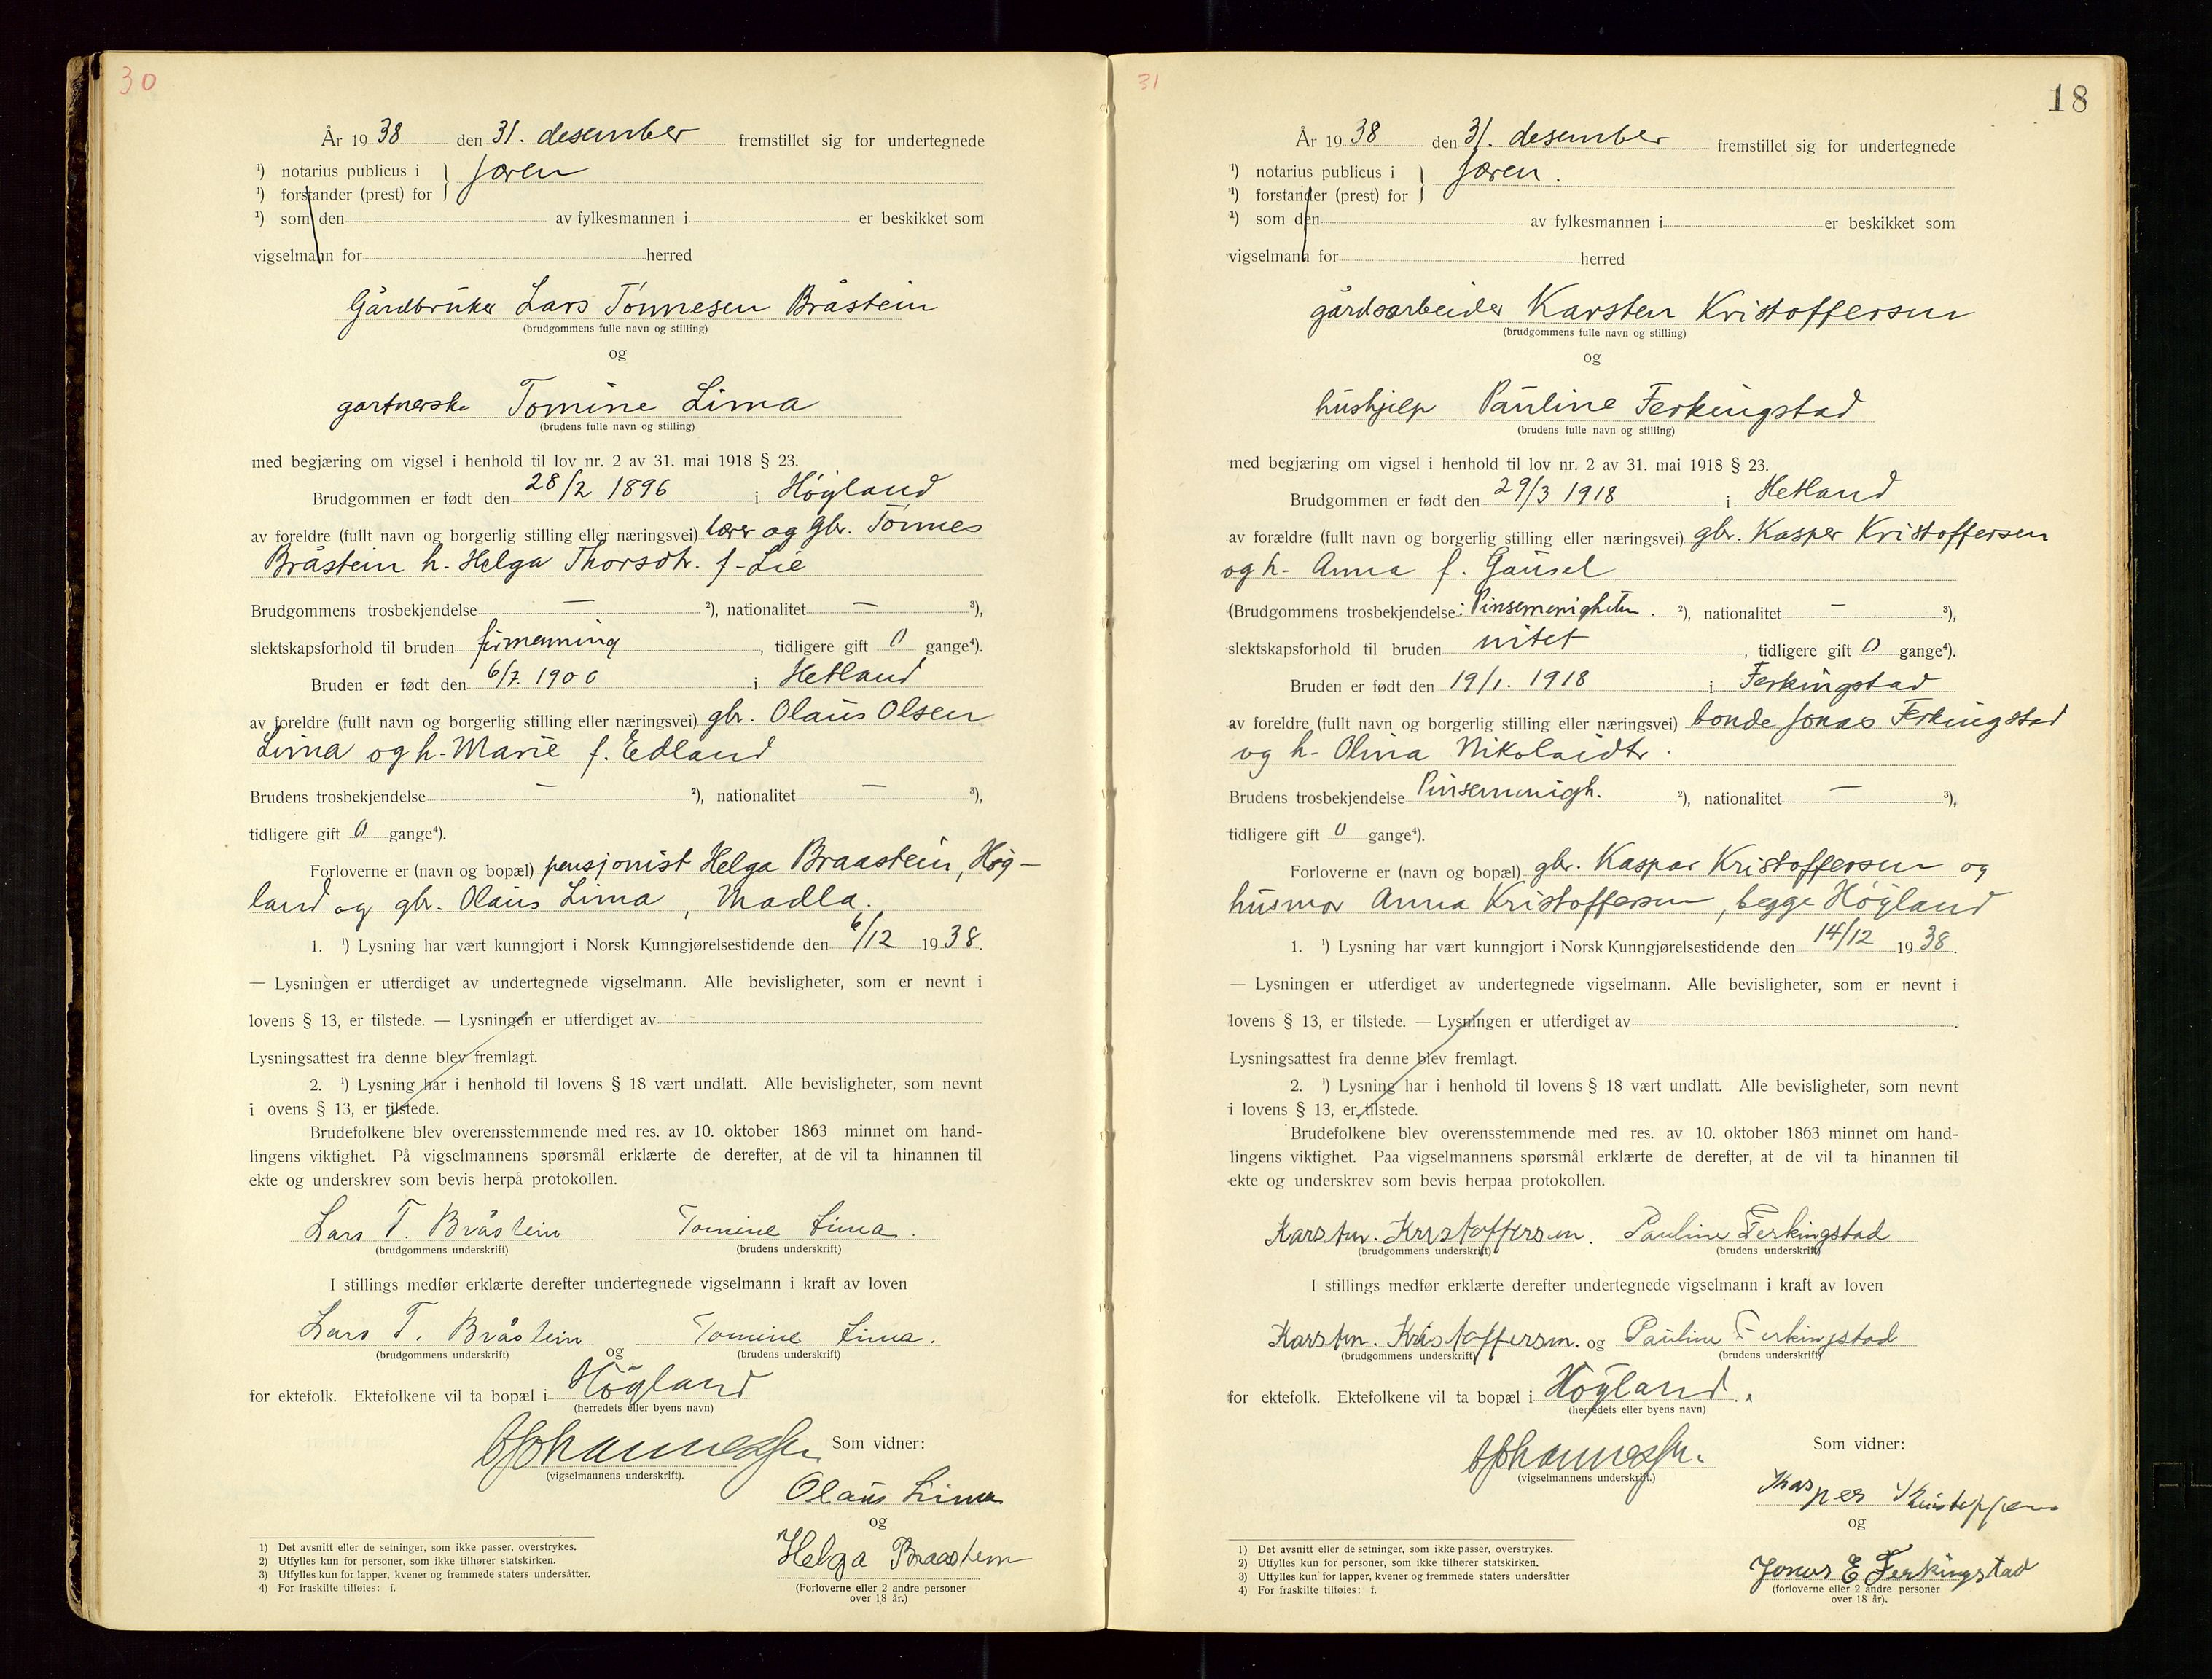 30
År 1938 den 31. desember fremstillet sig for undertegnede
¹) notarius publicus i } Jæren
¹) forstander (prest) for
¹) som den av fylkesmannen i er beskikket som
vigselmann for herred
Gårdbruker Lars Tønnesen Bråstein
(brudgommens fulle navn og stilling)
og
gartnerske Tomine Lima
(brudens fulle navn og stilling)
med begjæring om vigsel i henhold til lov nr. 2 av 31. mai 1918 § 23.
Brudgommen er født den 28/2 1896 i Høyland
av foreldre (fullt navn og borgerlig stilling eller næringsvei) lærer og gbr. Tønnes
Bråstein h. Helga Thorsdtr. f. Lie
Brudgommens trosbekjendelse — ²), nationalitet — ³),
slektskapsforhold til bruden firmenning, tidligere gift 0 gange⁴).
Bruden er født den 6/7. 1900 i Hetland
av foreldre (fullt navn og borgerlig stilling eller næringsvei) gbr. Olaus Olsen
Lima og h. Marie f. Edland
Brudens trosbekjendelse — ²), nationalitet — ³),
tidligere gift 0 gange⁴).
Forloverne er (navn og bopæl) pensjonist Helga Braastein, Høy-
land og gbr. Olaus Lima, Madla.
1. ¹) Lysning har vært kunngjort i Norsk Kunngjørelsestidende den 6/12 1938.
— Lysningen er utferdiget av undertegnede vigselmann. Alle bevisligheter, som er nevnt i
lovens § 13, er tilstede. — Lysningen er utferdiget av
Lysningsattest fra denne blev fremlagt.
2. ¹) Lysning har i henhold til lovens § 18 vært undlatt. Alle bevisligheter, som nevnt
i ovens § 13, er tilstede.
Brudefolkene blev overensstemmende med res. av 10. oktober 1863 minnet om hand-
lingens viktighet. På vigselmannens spørsmål erklærte de derefter, at de vil ta hinannen til
ekte og underskrev som bevis herpå protokollen.
Lars T. Bråstein Tomine Lima.
(brudgommens underskrift) (brudens underskrift)
I stillings medfør erklærte derefter undertegnede vigselmann i kraft av loven
Lars T. Bråstein og Tomine Lima.
(brudgommens underskrift) (brudens underskrift)
for ektefolk. Ektefolkene vil ta bopæl i Høyland
(herredets eller byens navn)
Johannessen Som vidner:
(vigselmannens underskrift).
Olaus Lima
og
Helga Braastein
(Forloverne eller 2 andre personer
over 18 år.)
1) Det avsnitt eller de setninger, som ikke passer, overstrykes.
2) Utfylles kun for personer, som ikke tilhører statskirken.
3) Utfylles kun for lapper, kvener og fremmede staters undersåtter.
4) For fraskilte tilføies: f.
31
18
År 1938 den 31. desember fremstillet sig for undertegnede
¹) notarius publicus i } Jæren.
¹) forstander (prest) for
¹) som den av fylkesmannen i er beskikket som
vigselmann for herred
gårdsarbeider Karsten Kristoffersen
(brudgommens fulle navn og stilling)
og
hushjelp Pauline Ferkingstad
(brudens fulle navn og stilling)
med begjæring om vigsel i henhold til lov nr. 2 av 31. mai 1918 § 23.
Brudgommen er født den 29/3 1918 i Hetland
av forældre (fullt navn og borgerlig stilling eller næringsvei) gbr. Kasper Kristoffersen
og h. Anna f. Gausel
(Brudgommens trosbekjendelse: Pinsemenigheten. ²), nationalitet — ³),
slektskapsforhold til bruden intet, tidligere gift 0 gange⁴).
Bruden er født den 19/1. 1918 i Ferkingstad
av foreldre (fullt navn og borgerlig stilling eller næringsvei) bonde Jonas Ferkingstad
og h. Olina Nikolaidtr.
Brudens trosbekjendelse Pinsemenigh. ²), nationalitet — ³),
tidligere gift 0 gange⁴).
Forloverne er (navn og bopæl) gbr. Kaspar Kristoffersen og
husmor Anna Kristoffersen, begge Høyland
1. ¹) Lysning har vært kunngjort i Norsk Kunngjørelsestidende den 14/12 1938.
— Lysningen er utferdiget av undertegnede vigselmann. Alle bevisligheter, som er nevnt i
lovens § 13, er tilstede. — Lysningen er utferdiget av
Lysningsattest fra denne blev fremlagt.
2. ¹) Lysning har i henhold til lovens § 18 vært undlatt. Alle bevisligheter, som nevnt
i lovens § 13, er tilstede.
Brudefolkene blev overensstemmende med res. av 10. oktober 1863 minnet om hand-
lingens viktighet. Paa vigselmannens spørsmål erklærte de derefter, at de vil ta hinannen til
ekte og underskrev som bevis herpaa protokollen.
Karsten. Kristoffersen. Pauline Ferkingstad
(brudgommens underskrift) (brudens underskrift)
I stillings medfør erklærte derefter undertegnede vigselmann i kraft av loven
Karsten. Kristoffersen. og Pauline Ferkingstad
(brudgommens underskrift) (brudens underskrift)
for ektefolk. Ektefolkene vil ta bopæl i Høyland.
(herredets eller byens navn)
Johannessen. Som vidner:
(vigselmannens underskrift.)
Kasper Kristoffersen
og
Jonas E Ferkingstad
(forloverne eller 2 andre personer
over 18 år).
1) Det avsnitt eller de setninger, som ikke passer, overstrykes.
2) Utfylles kun for personer, som ikke tilhører statskirken.
3) Utfylles kun for lapper, kvener og fremmede staters undersåtter
4) For fraskilte tilføies: f.